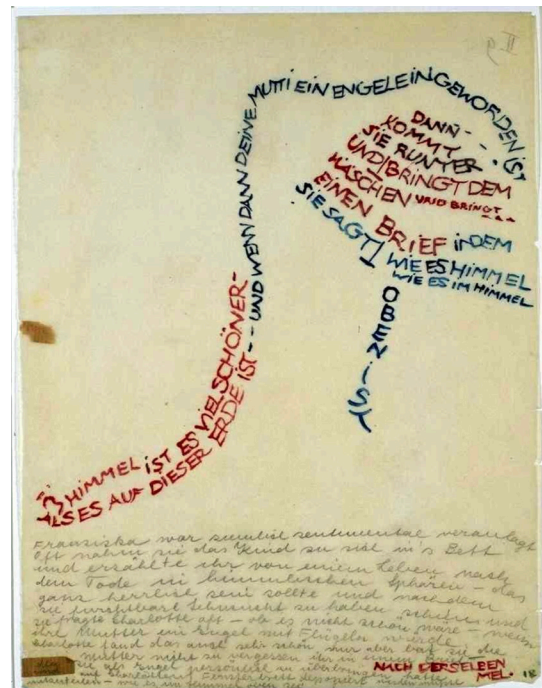 IM HIMMEL IST ES VIEL SCHÖNER-
ALS ES AUF DIESER ERDE IST--
-UND WENN DANN DEINE MUTTI EIN ENGELEIN GEWORDEN IST
DANN--
KOMMT
SIE RUNTER
UND BRINGT DEM
HÄSCHEN UND BRINGT...
EINEN BRIEF INDEM
SIE SAGT WIE ES HIMMEL
WIE ES IM HIMMEL
OBEN IST
Franziska war sentimental veranlagt
Oft nahm sie das Kind zu sich in's Bett
und erzählte ihr von einem Leben nach
dem Tode in himmlischen Sphären - das
ganz herrlich sein sollte und nach dem
sie furchtbare Sehnsucht zu haben schien und
sie fragte Charlotte oft - ob es nicht schön wäre - wenn
ihre Mutter ein Engel mit Flügeln
Charlotte fand das sehr schön nur bat sie die
Mutter nicht zu vergessen ihr in einem
als Engel persönlich zu
NACH DERSELBEN
MEL.
wie es im Himmel
18
II 9